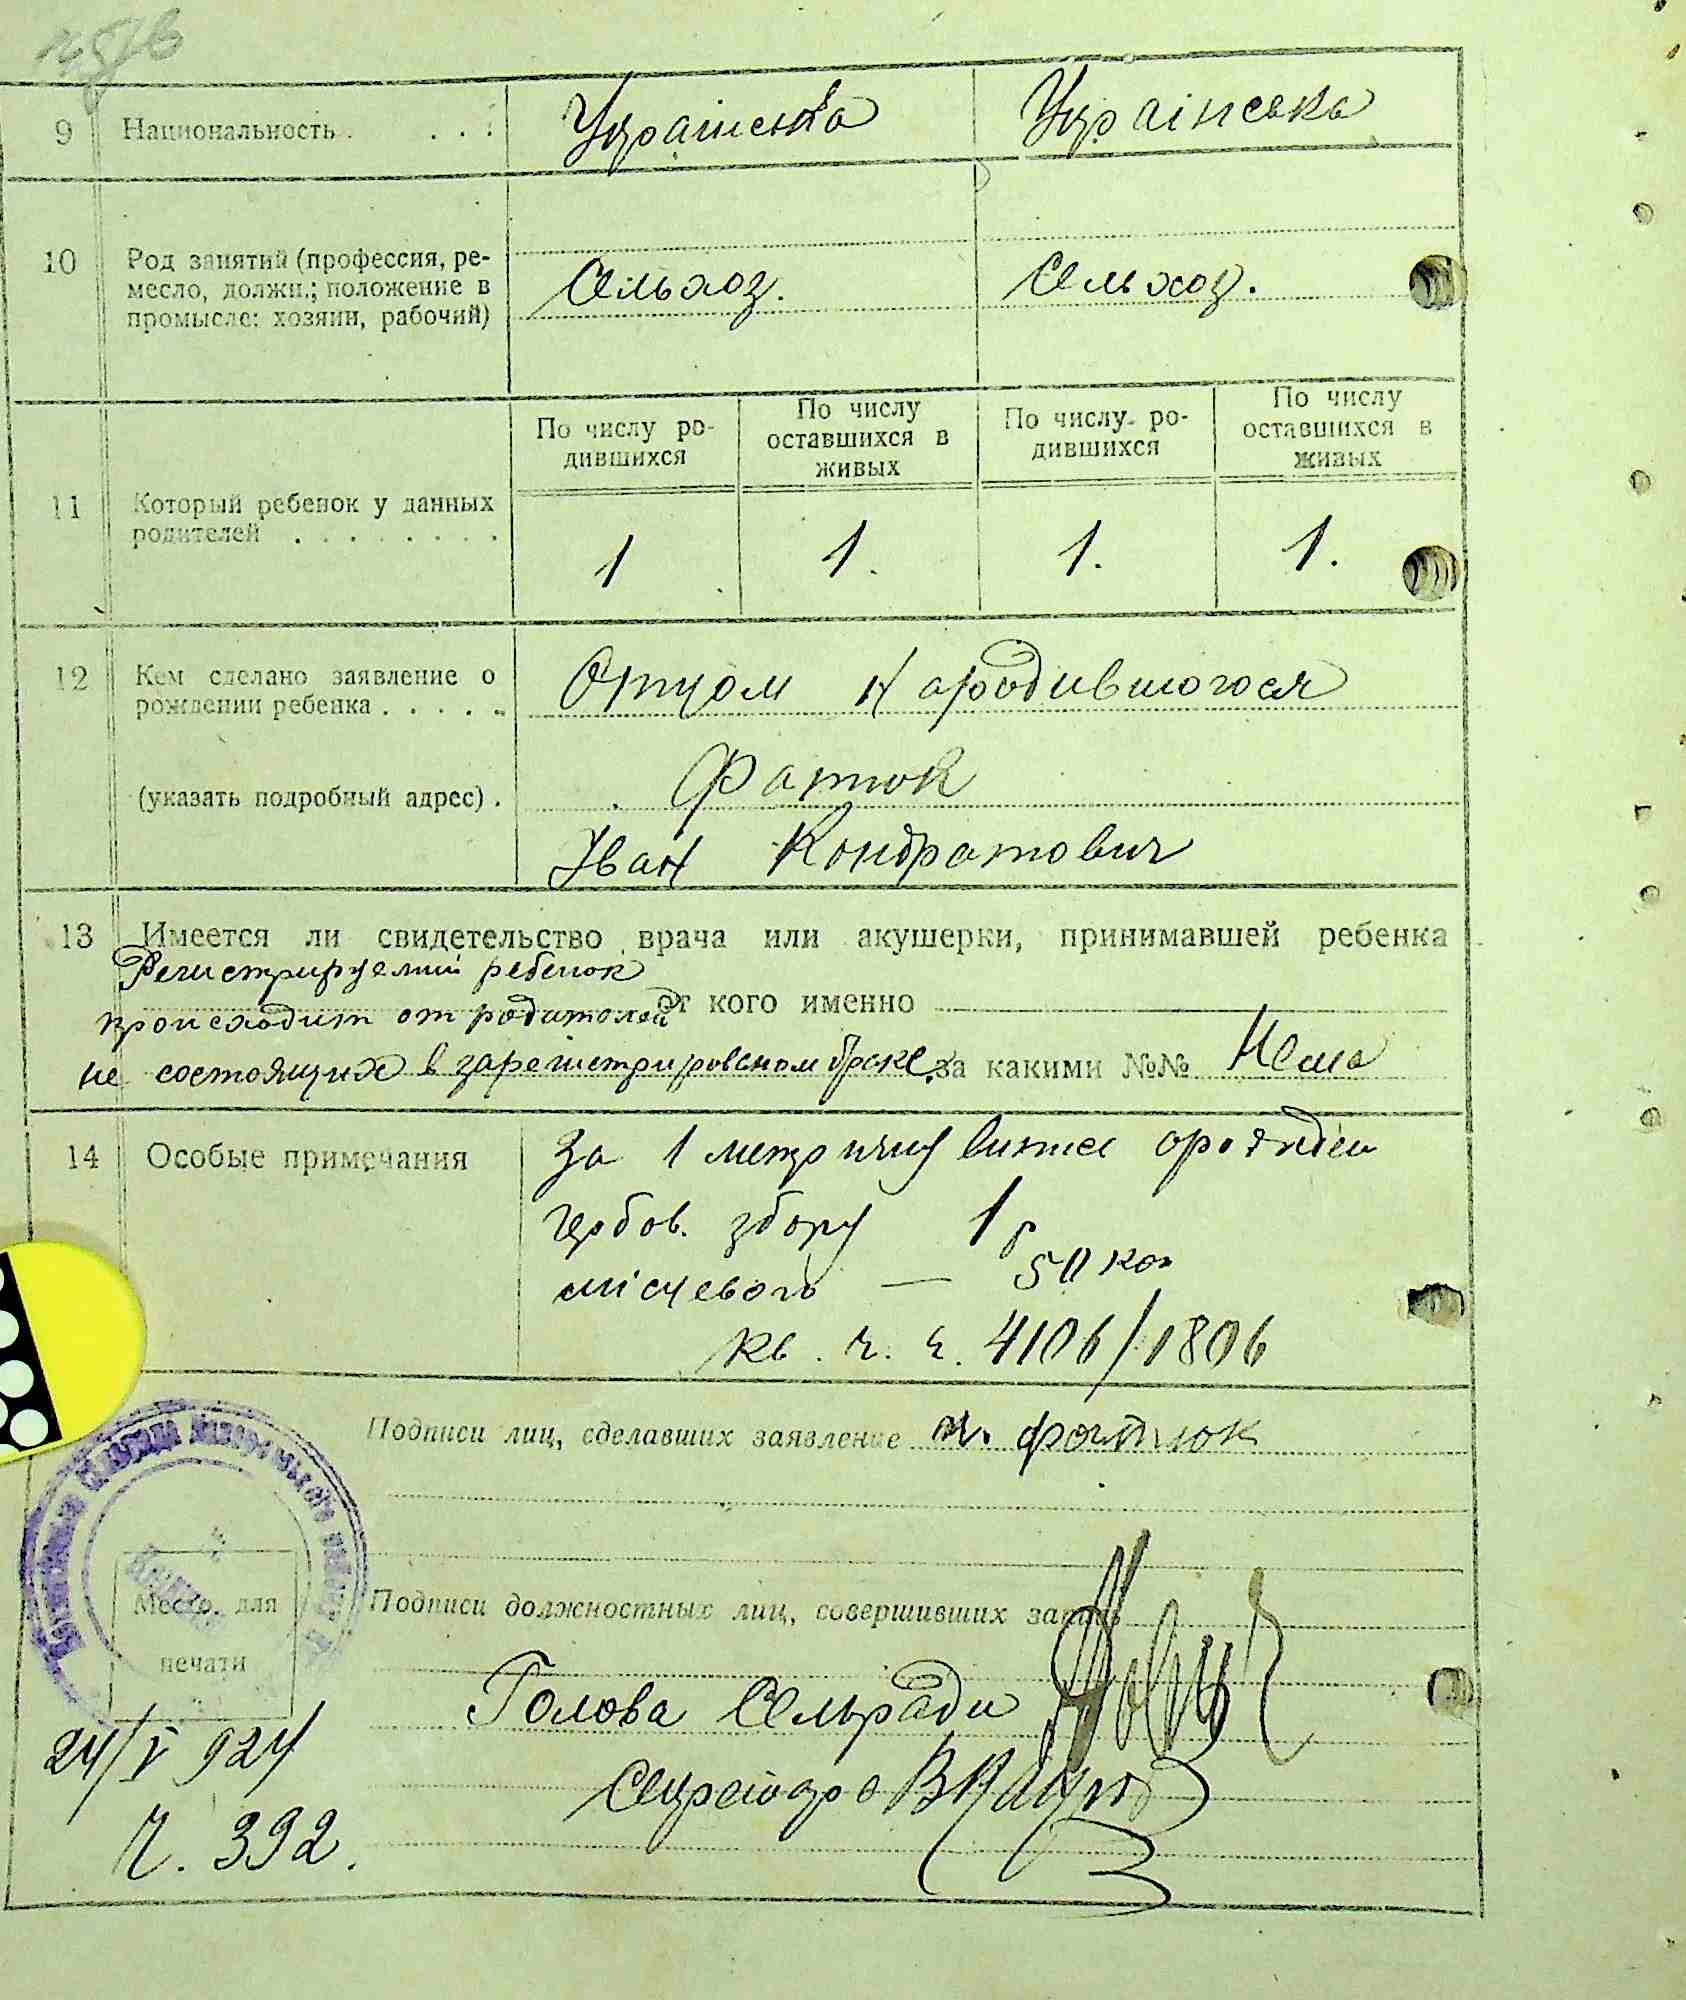 9 Национальность . . . . Українська Українська
10 Род занятий (профессия, ре-
месло, должн.; положение в
промысле: хозяин, рабочий)
Сельхоз. Сельхоз.
11 Который ребенок у данных
родителей . . . . . . . .
По числу ро-
дившихся
По числу
оставшихся в
живых
По числу ро-
дившихся
По числу
оставшихся в
живых
1 1. 1. 1.
12 Кем сделано заявление о
рождении ребенка . . . . .
Отцом народившогося
(указать подробный адрес) .
Фатюк
Іван Кондратович
13 Имеется ли свидетельство врача или акушерки, принимавшей ребенка
Регистрируемий ребенок
происходит от родителей от кого именно
не состоящих в зарегистрированом браке. за какими №№ Нема
14 Особые примечания
За 1 метричну
гербов. збору 1 р
місцевого — 50 коп
кв. ч. ч. 4106/1806
Подписи лиц, сделавших заявление Фатюк
Подписи должностных лиц, совершивших запись
Место для
печати
Голова Сельради
Секретарь
24/V 924
Ч. 392.